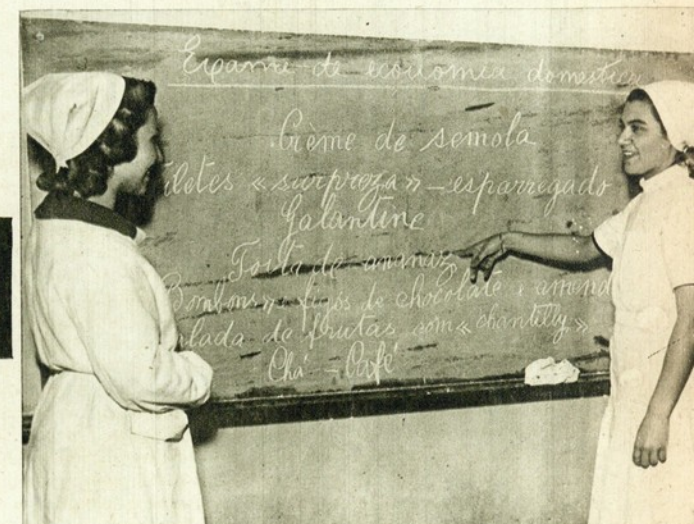 Exame de economia domestica
Crème de semola
iletes «surpreza» – esparregado
Galantine
de ananaz
Bombons» figos de chocolate e amend
alada de frutas com «chantilly»
Chá – Café